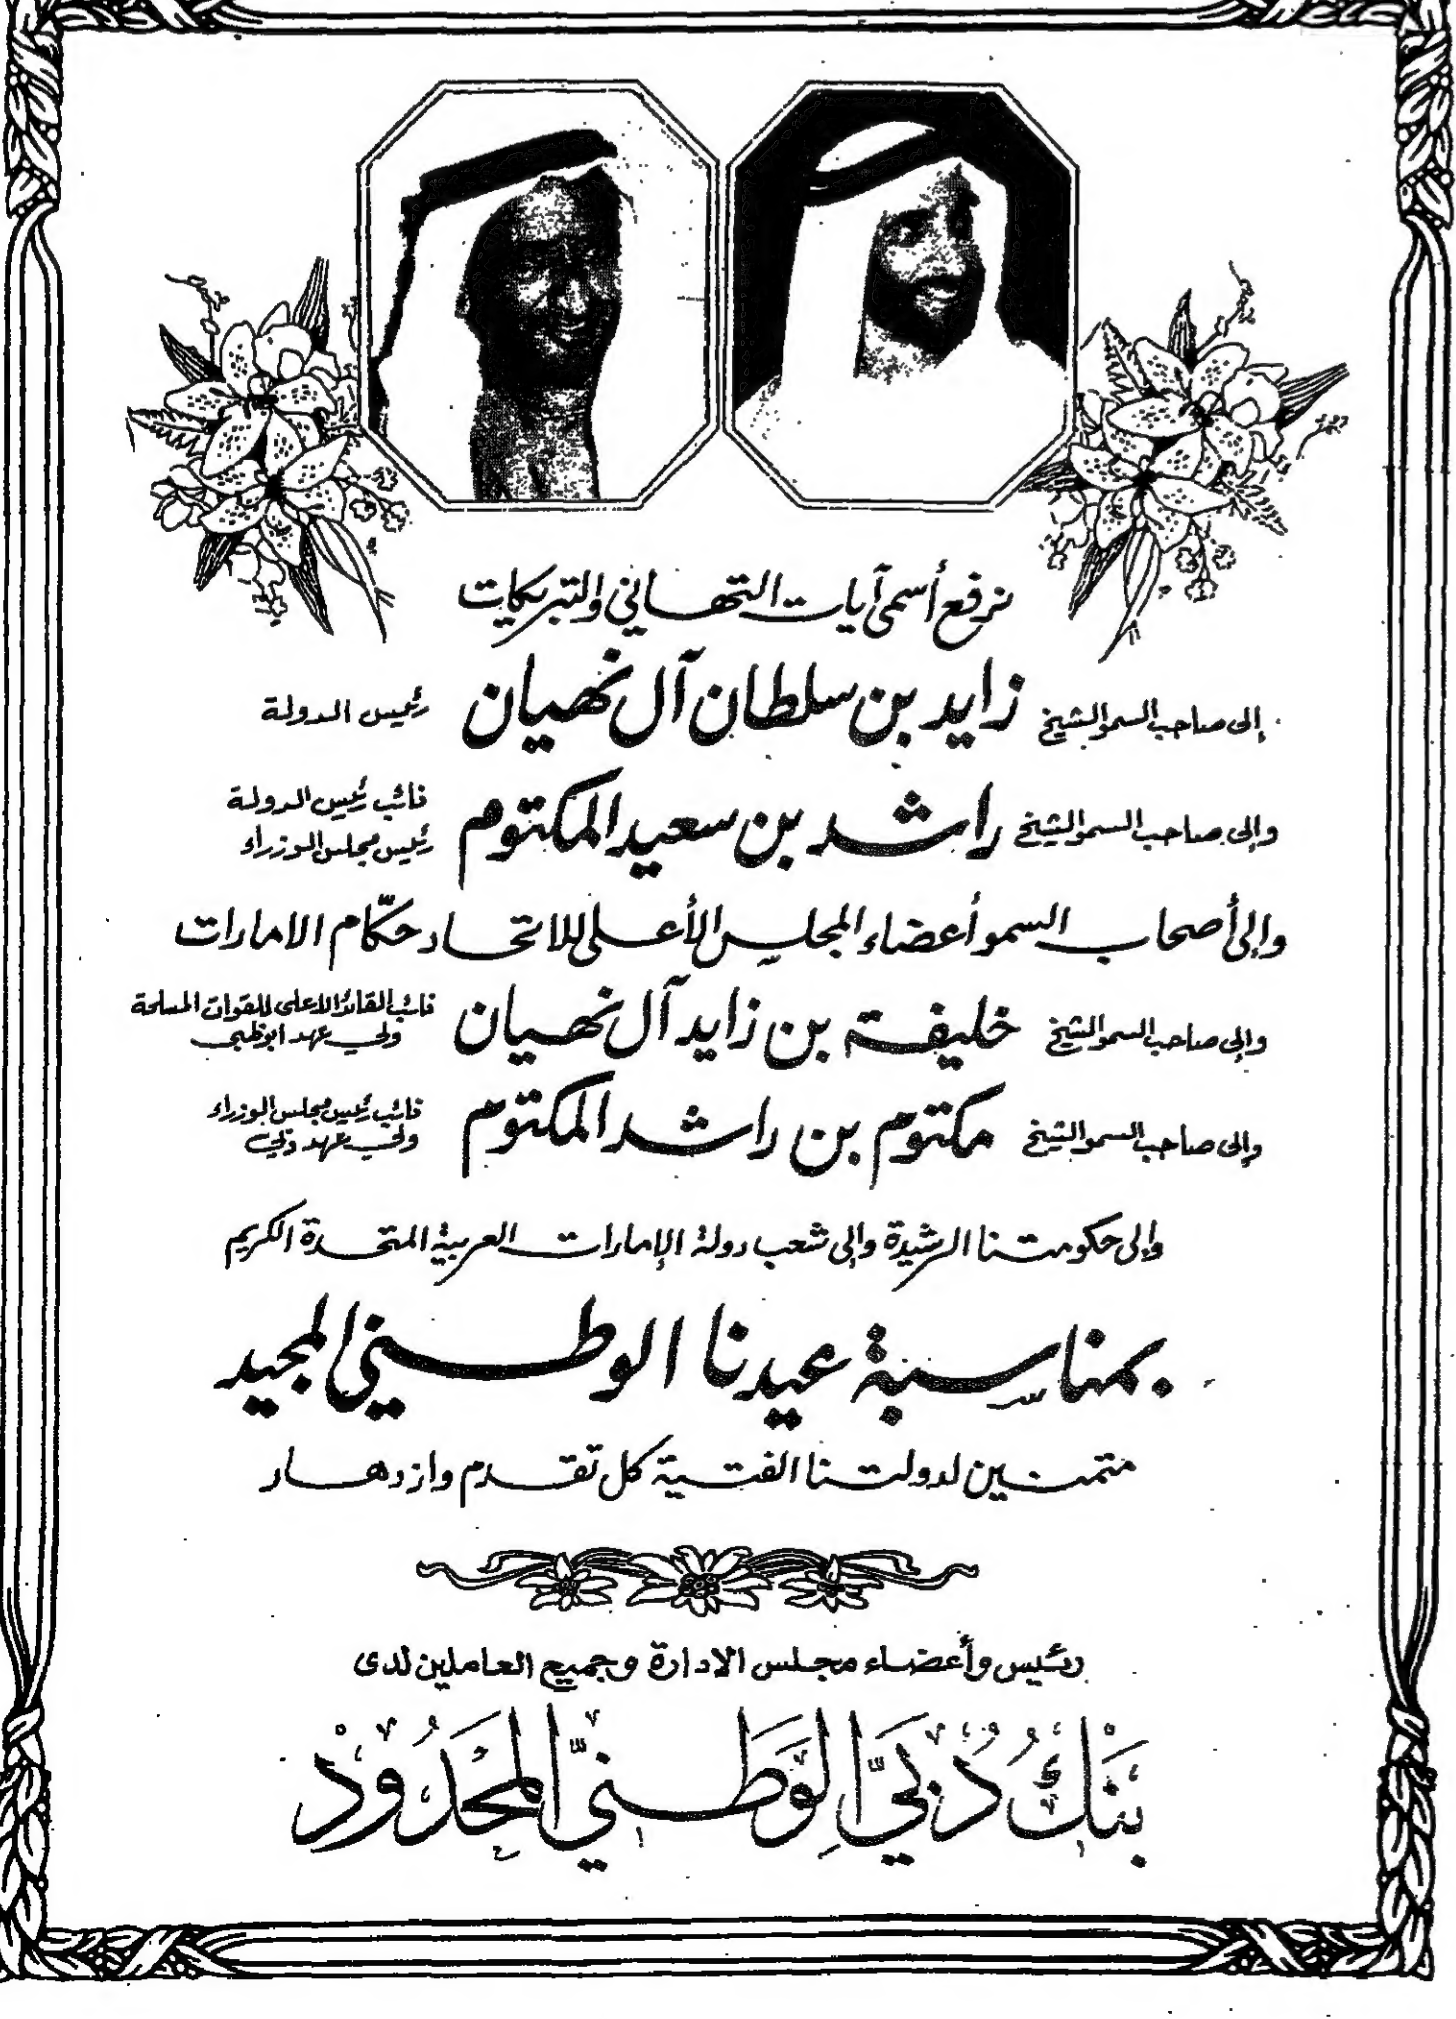 نرفع أسمى آيات التهاني والتبريكات
إلى صاحب السمو الشيخ زايد بن سلطان آل نهيان رئيس الدولة
وإلى صاحب السمو الشيخ راشد بن سعيد المكتوم نائب رئيس الدولة
رئيس مجلس الوزراء
وإلى أصحاب السمو أعضاء المجلس الأعلى للاتحاد حكّام الامارات
وإلى صاحب السمو الشيخ خليفة بن زايد آل نهيان نائب القائد الاعلى للقوات المسلحة
ولي عهد ابوظبي
وإلى صاحب السمو الشيخ مكتوم بن راشد المكتوم نائب رئيس مجلس الوزراء
ولي عهد دبي
وإلى حكومتنا الرشيدة وإلى شعب دولة الإمارات العربية المتحدة الكريم
بمناسبة عيدنا الوطني المجيد
متمنين لدولتنا الفتية كل تقدم وازدهار
رئيس وأعضاء مجلس الادارة وجميع العاملين لدى
بَنْكُ دُبَيّ الوَطَنيّ المَحْدُودْ